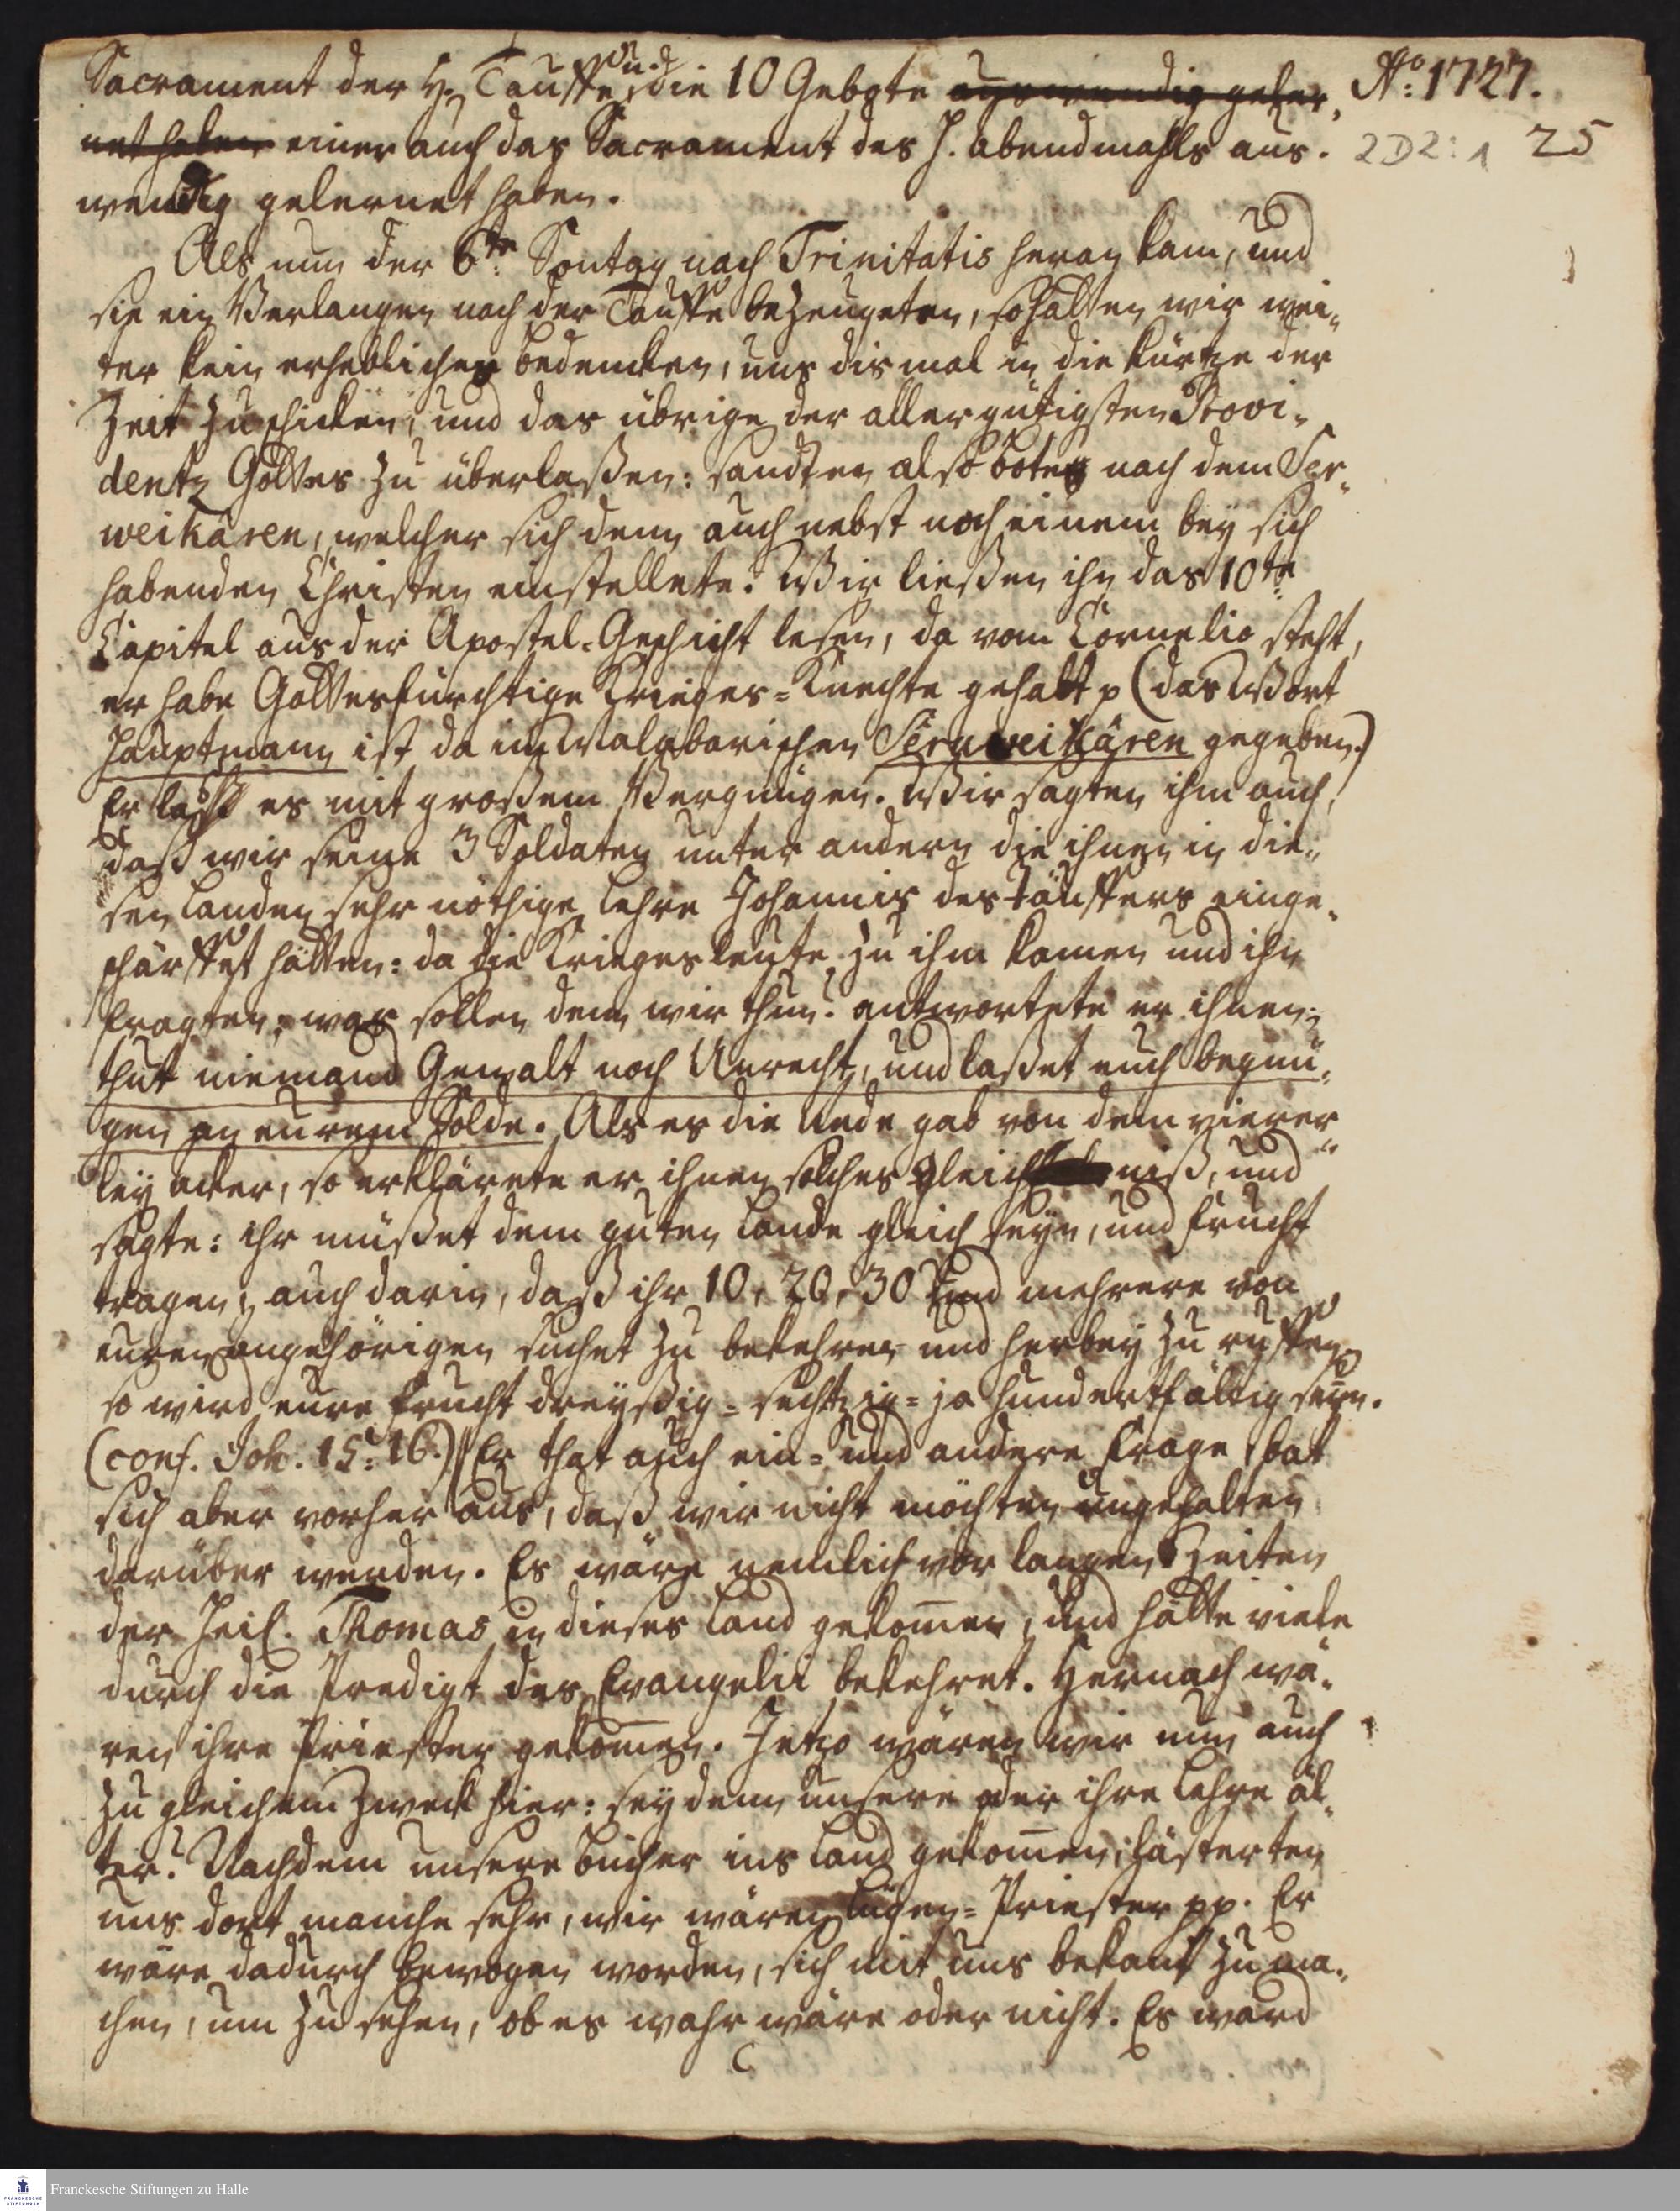 Sacrament der H. Tauffe u. die 10 Gebote auswendig geler- Aō: 1727.
net haben einer auch das Sacrament des H. abendmahls aus- 2D2:1 25
wendig gelernet haben.
Als nun der 6te Sontag nach Trinitatis heran kam, und
sie ein Verlangen nach der Tauffe bezeugeten, so hatten wir wei-
ter kein erhebliches bedencken, uns dismal in die kürtze der
Zeit zu schicken, und das übrige der allergütigsten Provi-
dentz Gottes zu überlaßen: sandten also boten nach dem Ser-
weikáren, welcher sich denn auch nebst noch einem bey sich
habenden Christen einstellete. Wir ließen ihn das 10te
Capitel aus der Apostel-Geschicht lesen, da vom Cornelio steht,
er habe Gottesfürchtige Krieges-Knechte gehabt p (das Wort
Hauptmann ist da im Malabarischen Seruweikáren gegeben.)
Er laß es mit großem Vergnügen. Wir sagten ihm auch,
daß wir seine 3 Soldaten unter andern die ihnen in die-
sen Landen sehr nöthige Lehre Johannis des Täuffers einge-
schärffet hätten: da die Kriegesleute zu ihm kamen und ihn
fragten, was sollen denn wir thun? antwortete er ihnen:
thut niemand Gewalt noch Unrecht, und laßet euch begnü-
gen an eurem Solde. Als es die Rede gab von dem vierer-
ley acker, so erklärete er ihnen solches Gleichniß, und
sagte: ihr müßet dem guten Lande gleich seyn, und Frucht
tragen; auch darin, daß ihr 10, 20, 30 und mehrere von
euren angehörigen suchet zu bekehren und herbey zu ruffen,
so wird eure Frucht dreyßig- sechtzig- ja hundertfältig seyn.
(conf. Joh. 15: 16.) Er that auch ein- und andere Frage, bat
sich aber vorher aus, daß wir nicht möchten ungehalten
darüber werden. Es wäre nemlich vor langen Zeiten
der Heil. Thomas in dieses Land gekom̄en, und hätte viele
durch die Predigt des Evangelii bekehret. Hernach wä-
ren ihre Priester gekom̄en. Jetzo wären wir nun auch
zu gleichem Zweck hier: sey denn unsere oder ihre Lehre äl-
ter? Nachdem unsere Bücher ins Land gekom̄en, lästerten
uns dort manche sehr, wir wären Lügen-Priester pp. Er
wäre dadurch bewogen worden, sich mit uns bekant zu ma-
chen, um zu sehen, ob es wahr wäre oder nicht. Es ward
C
Franckesche Stiftungen zu Halle